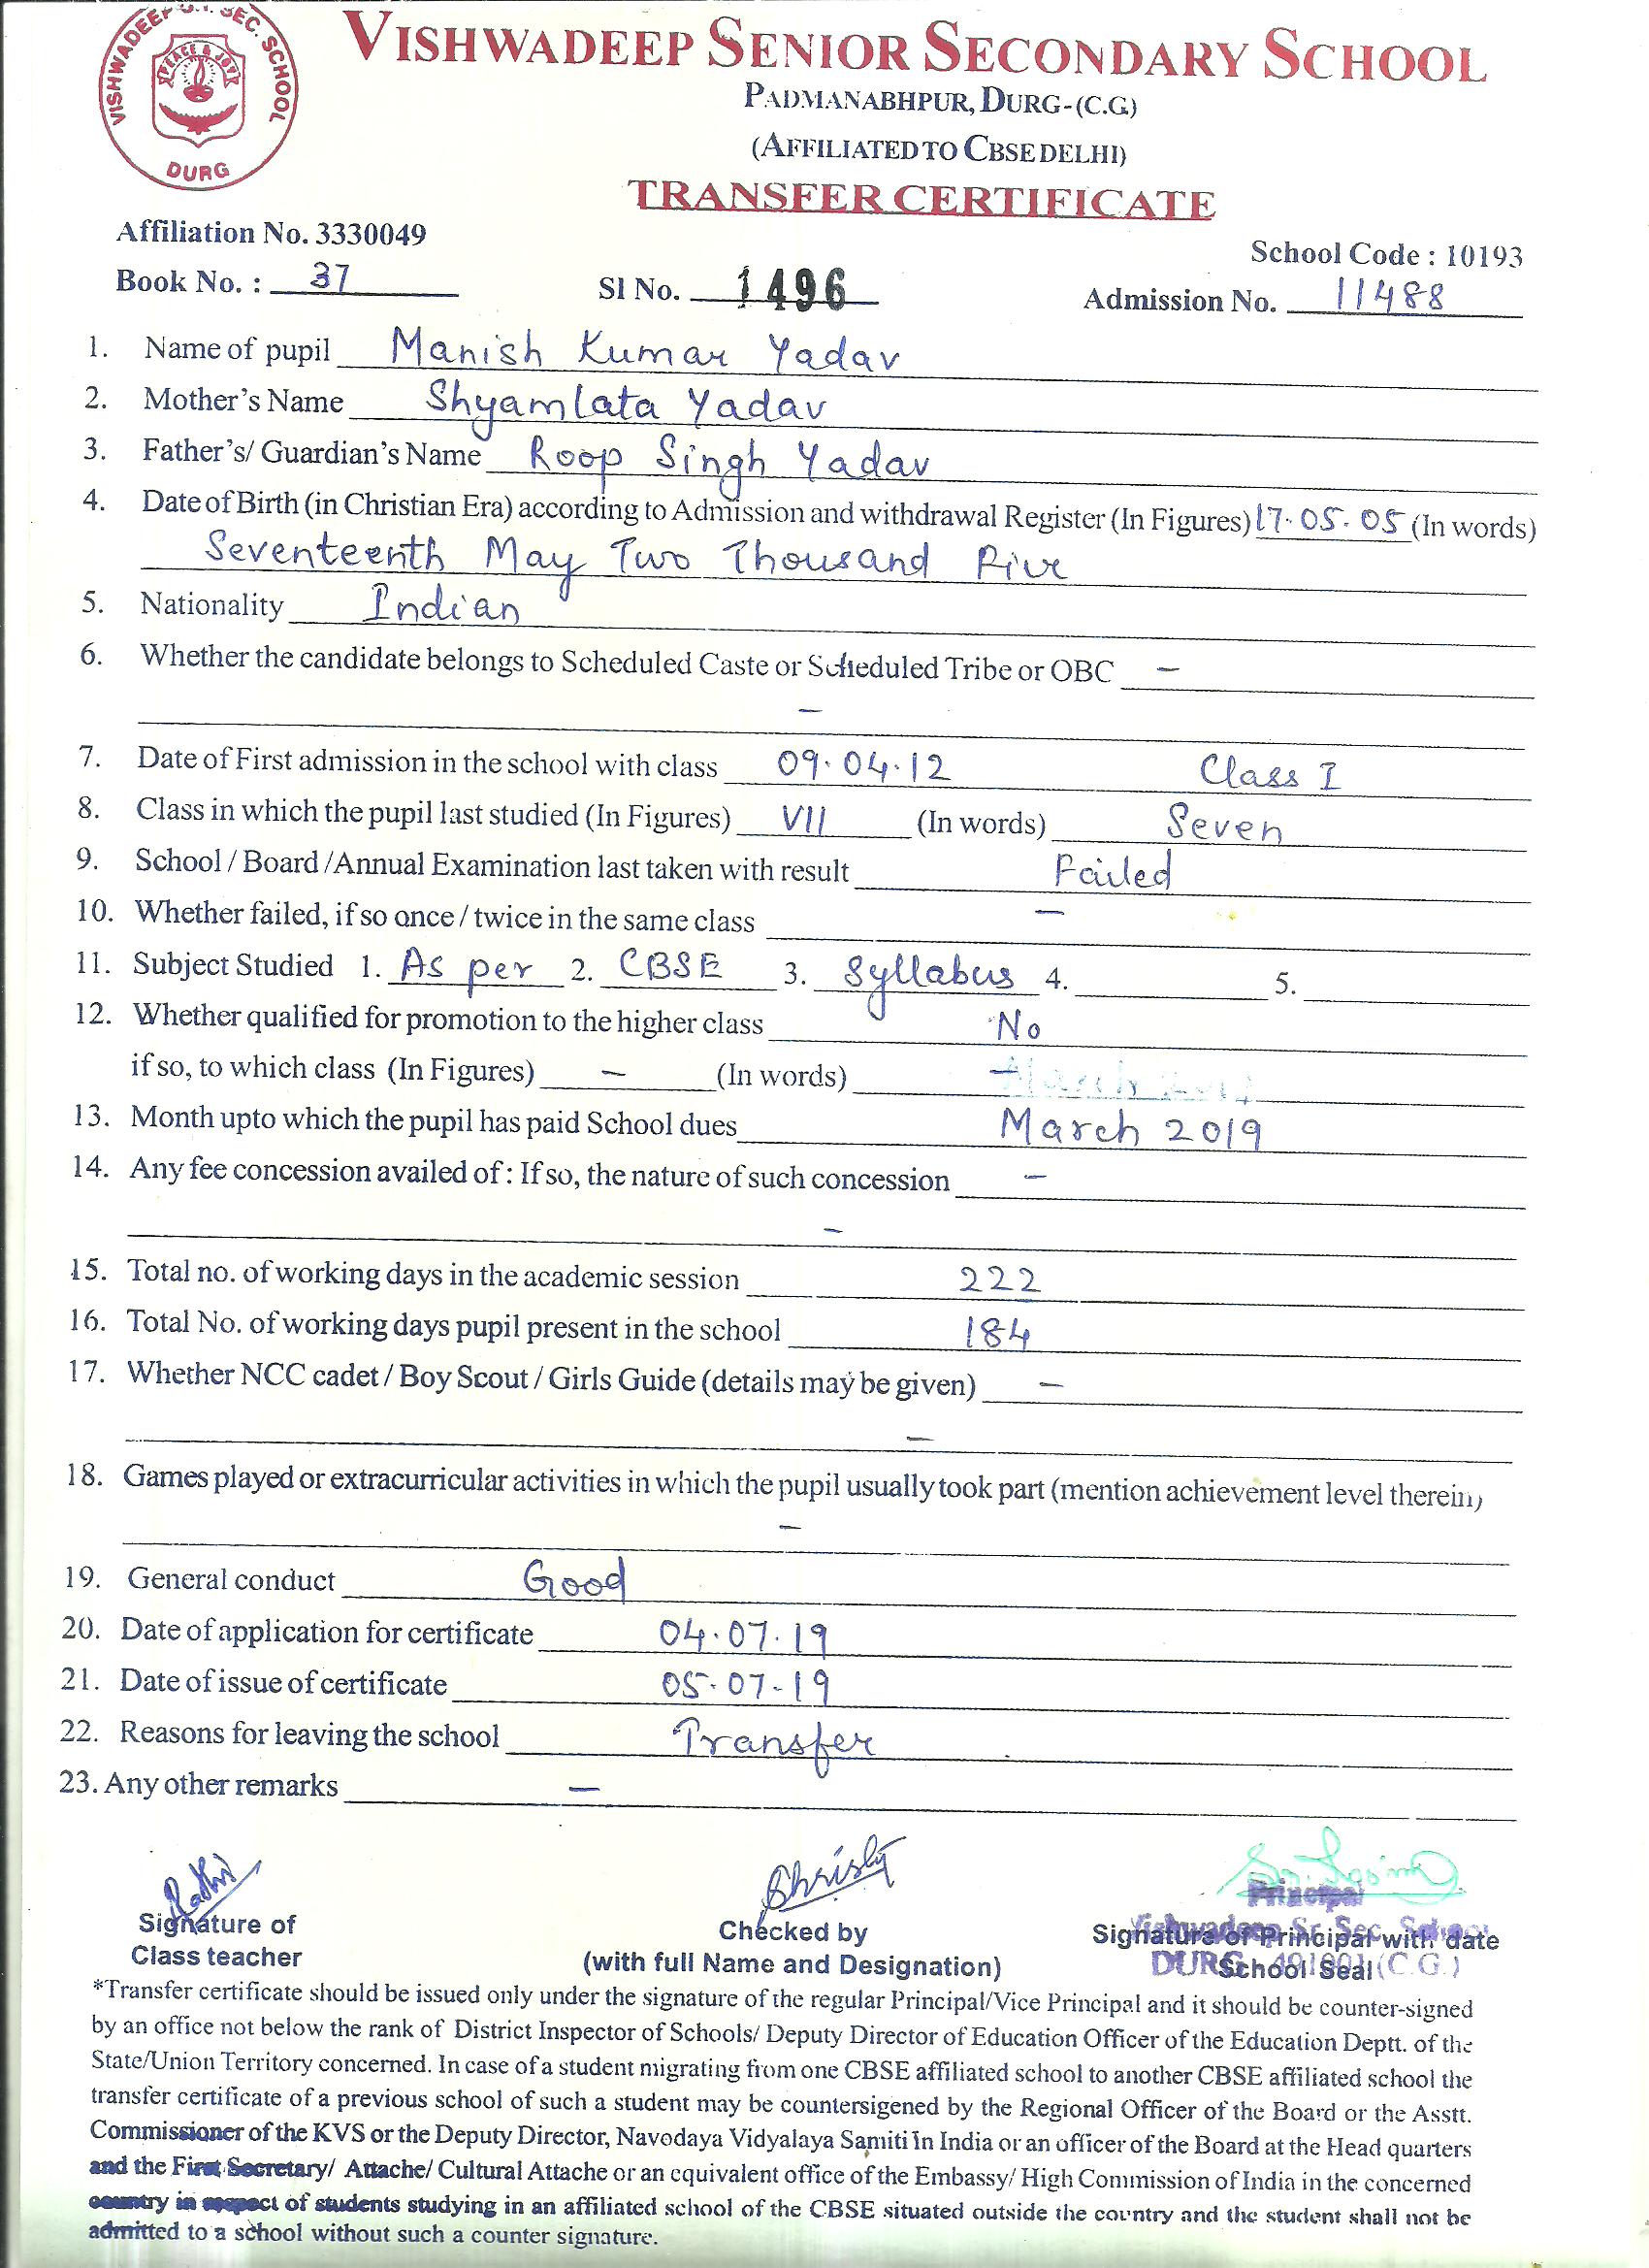 VISHWADEEP SR. SEC. SCHOOL
PEACE & JOY
DURG
VISHWADEEP SENIOR SECONDARY SCHOOL
PADMANABHPUR, DURG-(C.G.)
(AFFILIATED TO CBSE DELHI)
TRANSFER CERTIFICATE
Affiliation No. 3330049
School Code : 10193
Book No. : 37 Sl No. 1496 Admission No. 11488
1. Name of pupil Manish Kumar Yadav
2. Mother's Name Shyamlata Yadav
3. Father's/ Guardian's Name Roop Singh Yadav
4. Date of Birth (in Christian Era) according to Admission and withdrawal Register (In Figures) 17.05.05 (In words)
Seventeenth May Two Thousand Five
5. Nationality Indian
6. Whether the candidate belongs to Scheduled Caste or Scheduled Tribe or OBC –
–
7. Date of First admission in the school with class 09.04.12 Class I
8. Class in which the pupil last studied (In Figures) VII (In words) Seven
9. School / Board /Annual Examination last taken with result Failed
10. Whether failed, if so once / twice in the same class –
11. Subject Studied 1. As per 2. CBSE 3. Syllabus 4. 5.
12. Whether qualified for promotion to the higher class No
if so, to which class (In Figures) – (In words) –
13. Month upto which the pupil has paid School dues March 2019
14. Any fee concession availed of : If so, the nature of such concession –
–
15. Total no. of working days in the academic session 222
16. Total No. of working days pupil present in the school 184
17. Whether NCC cadet / Boy Scout / Girls Guide (details may be given) –
–
18. Games played or extracurricular activities in which the pupil usually took part (mention achievement level therein)
–
19. General conduct Good
20. Date of application for certificate 04.07.19
21. Date of issue of certificate 05.07.19
22. Reasons for leaving the school Transfer
23. Any other remarks –
Principal
Signature of Checked by Signature of Principal with date
Vishwadeep Sr. Sec. School
Class teacher (with full Name and Designation) School Seal
DURG 491001 (C.G.)
*Transfer certificate should be issued only under the signature of the regular Principal/Vice Principal and it should be counter-signed
by an office not below the rank of District Inspector of Schools/ Deputy Director of Education Officer of the Education Deptt. of the
State/Union Territory concerned. In case of a student migrating from one CBSE affiliated school to another CBSE affiliated school the
transfer certificate of a previous school of such a student may be countersigened by the Regional Officer of the Board or the Asstt.
Commissioner of the KVS or the Deputy Director, Navodaya Vidyalaya Samiti in India or an officer of the Board at the Head quarters
and the First Secretary/ Attache/ Cultural Attache or an equivalent office of the Embassy/ High Commission of India in the concerned
country in respect of students studying in an affiliated school of the CBSE situated outside the country and the student shall not be
admitted to a school without such a counter signature.